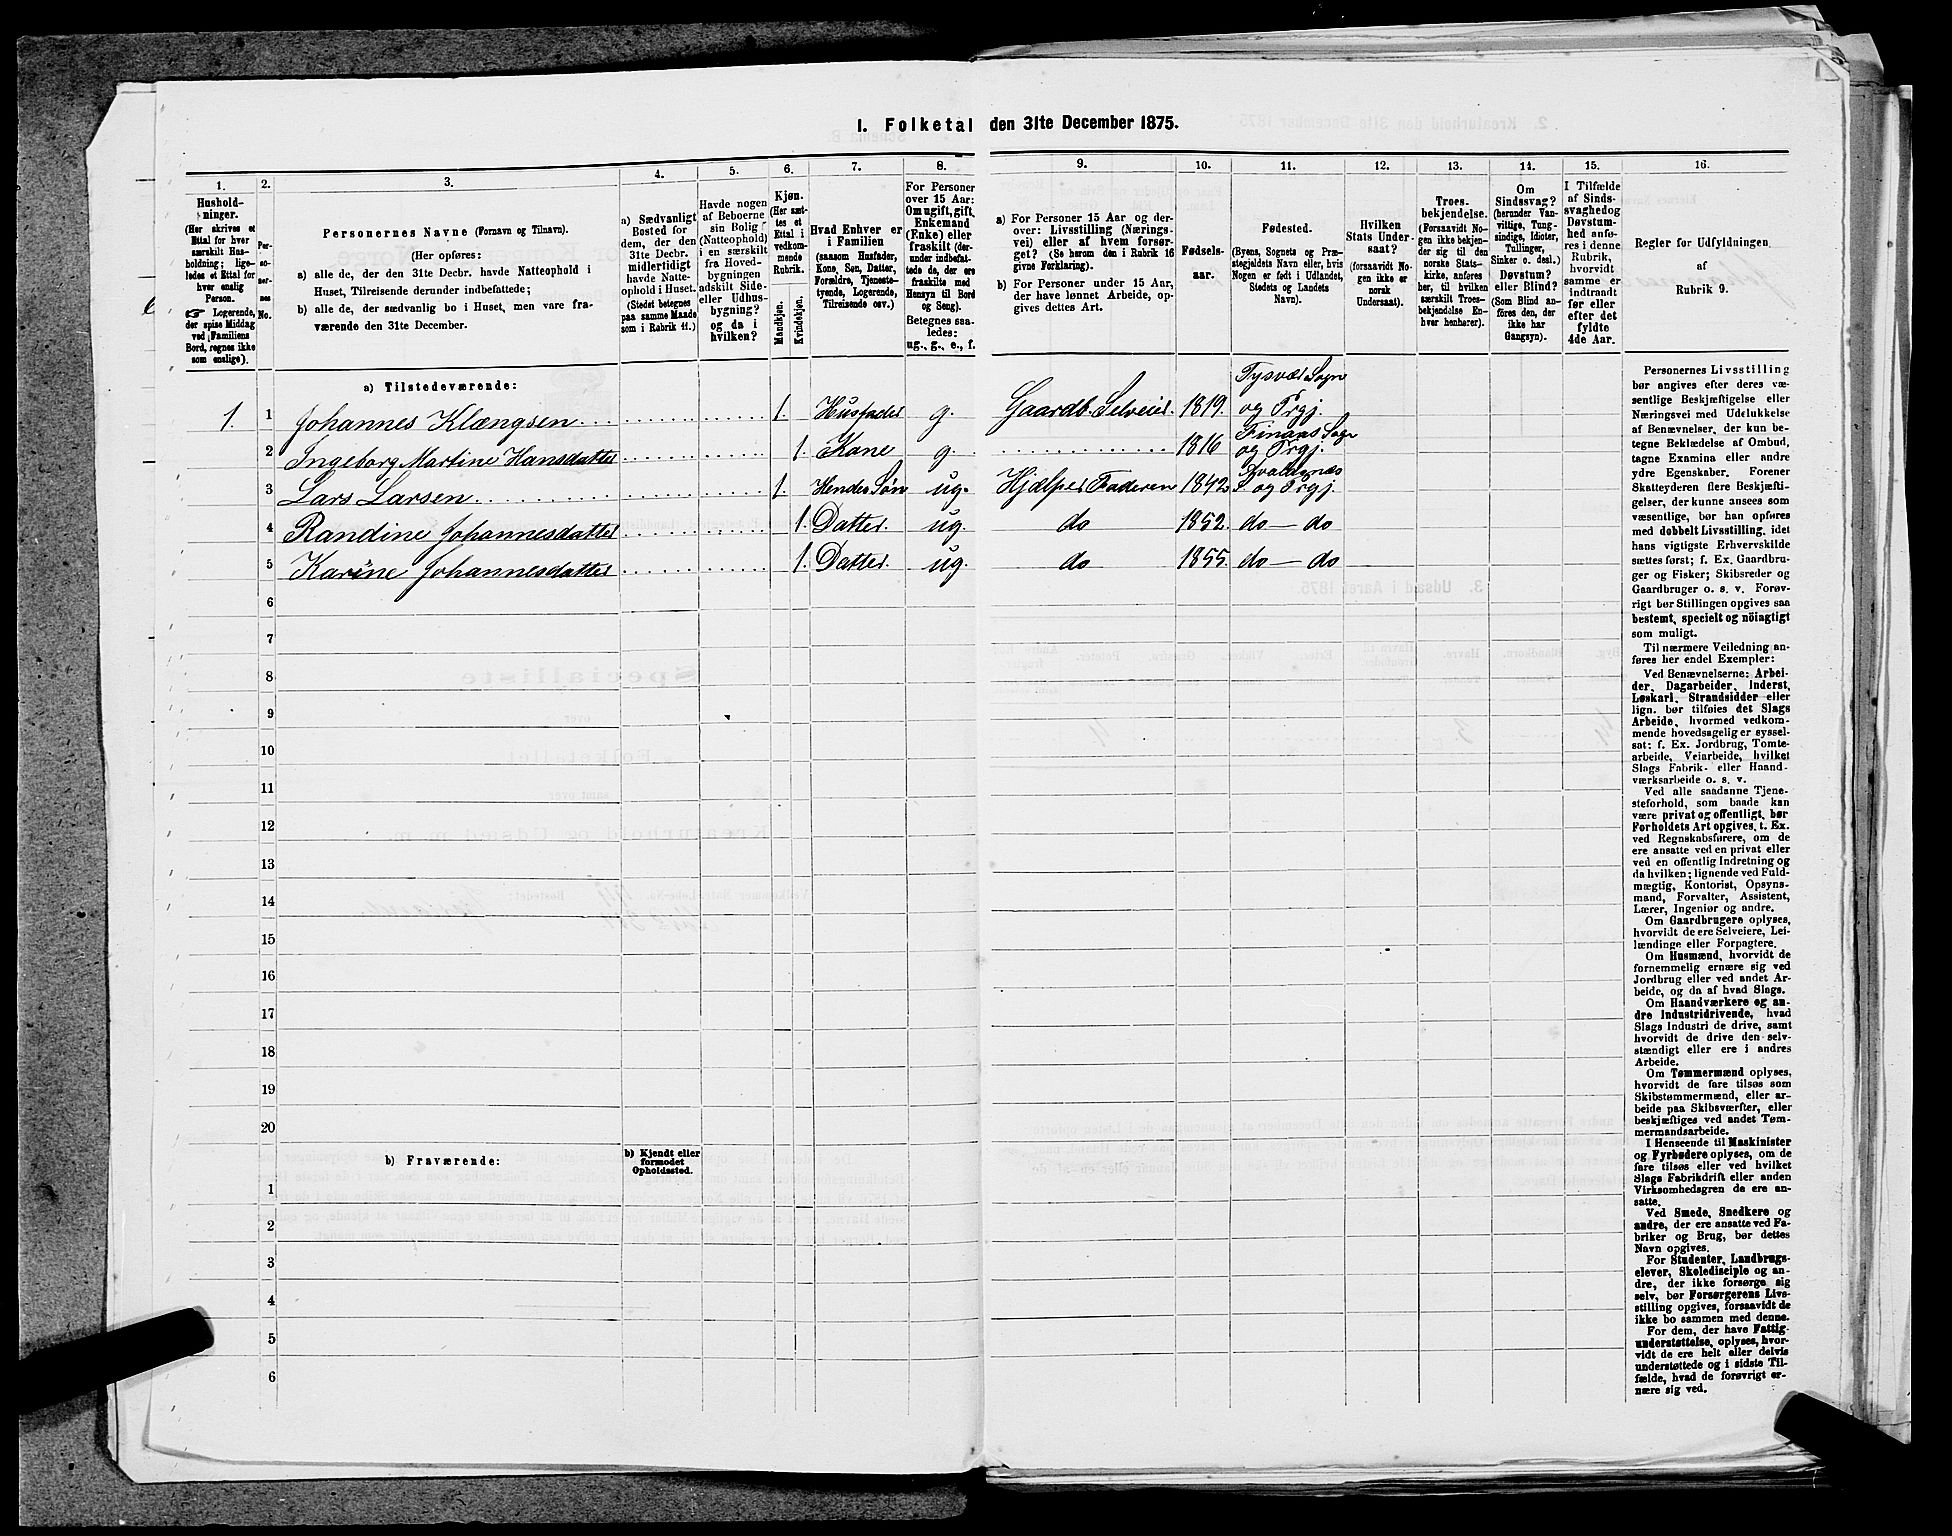 I. Folketal den 31te December 1875.
1.
Hushold-
ninger.
(Her skrives et
Ettal for hver
særskilt Hus-
holdning; lige-
ledes et Ettal for
hver enslig
Person.
☞ Logerende,
der spise Middag
ved Familiens
Bord, regnes ikke
som enslige).
2.
Per-
so-
ner-
nes
No.
3.
Personernes Navne (Fornavn og Tilnavn).
(Her opføres:
a) alle de, der den 31te Decbr. havde Natteophold i
Huset, Tilreisende derunder indbefattede;
b) alle de, der sædvanlig bo i Huset, men vare fra-
værende den 31te December.
4.
a) Sædvanligt
Bosted for
dem, der den
31te Decbr.
midlertidigt
havde Natte-
ophold i Huset.
(Stedet betegnes
paa samme Maade
som i Rubrik 11.)
5.
Havde nogen
af Beboerne
sin Bolig
(Natteophold)
i en særskilt
fra Hoved-
bygningen
adskilt Side-
eller Udhus-
bygning?
og da i
hvilken?
6.
Kjøn.
(Her sæt-
tes et
Ettal i
vedkom-
mende
Rubrik.
Mandkjøn.
Kvindekjøn.
7.
Hvad Enhver er
i Familien
(saasom Husfader,
Kone, Søn, Datter,
Forældre, Tjeneste-
tyende, Logerende,
Tilreisende osv.)
8.
For Personer
over 15 Aar:
Om ugift, gift,
Enkemand
(Enke) eller
fraskilt (der-
under indbefat-
tede de, der ere
fraskilte med
Hensyn til Bord
og Seng).
Betegnes saa-
ledes:
ug., g., e., f.
9.
a) For Personer 15 Aar og der-
over: Livsstilling (Nærings-
vei) eller af hvem forsør-
get? (Se herom den i Rubrik 16
givne Forklaring).
b) For Personer under 15 Aar,
der have lønnet Arbeide, op-
gives dettes Art.
10.
Fødsels-
aar.
11.
Fødested.
(Byens, Sognets og Præ-
stegjeldets Navn eller, hvis
Nogen er født i Udlandet,
Stedets og Landets
Navn).
12.
Hvilken
Stats Under-
saat?
(forsaavidt No-
gen ikke er
norsk
Undersaat).
13.
Troes-
bekjendelse.
(Forsaavidt No-
gen ikke bekjen-
der sig til den
norske Stats-
kirke, anføres
her, til hvilken
særskilt Troes-
bekjendelse En-
hver henhører).
14.
Om
Sindssvag?
(herunder Van-
vittige, Tung-
sindige, Idioter,
Tullinger,
Sinker o. desl.).
Døvstum?
eller Blind?
(Som Blind an-
føres den, der
ikke har
Gangsyn).
15.
I Tilfælde
af Sinds-
svaghed og
Døvstum-
hed anfø-
res i denne
Rubrik,
hvorvidt
samme er
indtraadt
før eller
efter det
fyldte
4de Aar.
16.
Regler for Udfyldningen
af
Rubrik 9.
a) Tilstedeværende:
1. 1 Johannes Klængsen 1. Husfader g. Gaardb. Selveier. 1819. Tysvær Sogn
og Prgj.
2 Ingeborg Martine Hansdatter 1. Kone g. 1816 Finaas Sogn
og Prgj.
3 Lars Larsen 1. Hendes Søn ug. Hjælper Faderen 1842 Avaldsnæs
S og Prgj.
4 Randine Johannesdatter 1. Datter. ug. do 1852. do — do
5 Karine Johannesdatter 1. Datter. ug. do 1855. do — do
6
7
8
9
10
11
12
13
14
15
16
17
18
19
20
b) Fraværende:
b) Kjendt eller
formodet
Opholdssted.
1
2
3
4
5
6
Personernes Livsstilling
bør angives efter deres væ-
sentlige Beskjæftigelse eller
Næringsvei med Udelukkelse
af Benævnelser, der kun be-
tegne Beklædelse af Ombud,
tagne Examina eller andre
ydre Egenskaber. Forener
Skatteyderen flere Beskjæfti-
gelser, der kunne ansees som
væsentlige, bør han opføres
med dobbelt Livsstilling, idet
hans vigtigste Erhvervskilde
sættes først; f. Ex. Gaardbru-
ger og Fisker; Skibsreder og
Gaardbruger o. s. v. Forøv-
rigt bør Stillingen opgives saa
bestemt, specielt og nöiagtigt
som muligt.
Til nærmere Veiledning an-
føres her endel Exempler:
Ved Benævnelserne: Arbei-
der, Dagarbeider, Inderst,
Løskarl, Strandsidder eller
lign. bør tilføies det Slags
Arbeide, hvormed vedkom-
mende hovedsagelig er syssel-
sat; f. Ex. Jordbrug, Tomte-
arbeide, Veiarbeide, hvilket
Slags Fabrik- eller Haand-
værksarbeide o. s. v.
Ved alle saadanne Tjene-
steforhold, som baade kan
være privat og offentligt, bør
Forholdets Art opgives, t. Ex.
ved Regnskabsførere, om de
ere ansatte ved en privat eller
ved en offentlig Indretning og
da hvilken; lignende ved Fuld-
mægtig, Kontorist, Opsyns-
mand, Forvalter, Assistent,
Lærer, Ingeniør og andre.
Om Gaardbrugere oplyses,
hvorvidt de ere Selveiere, Lei-
lændinge eller Forpagtere.
Om Husmænd, hvorvidt de
fornemmelig ernære sig ved
Jordbrug eller ved andet Ar-
beide, og da af hvad Slags.
Om Haandværkere og an-
dre Industridrivende, hvad
Slags Industri de drive, samt
hvorvidt de drive den selv-
stændigt eller ere i andres
Arbeide.
Om Tømmermænd oplyses,
hvorvidt de fare tilsøs som
Skibstømmermænd, eller ar-
beide paa Skibsværfter, eller
beskjæftiges ved andet Tøm-
mermandsarbeide.
I Henseende til Maskinister
og Fyrbødere oplyses, om de
fare tilsøs eller ved hvilket
Slags Fabrikdrift eller anden
Virksomhedsgren de ere an-
satte.
Ved Smede, Snedkere og
andre, der ere ansatte ved Fa-
briker og Brug, bør dettes
Navn opgives.
For Studenter, Landbrugs-
elever, Skoledisciple og an-
dre, der ikke forsørge sig
selv, bør Forsørgerens Livs-
stilling opgives, forsaavidt de
ikke bo sammen med denne.
For dem, der have Fattig-
understøttelse, oplyses, hvor-
vidt de ere helt eller delvis
understøttede og i sidste Til-
fælde, hvad de forøvrigt er-
nære sig ved.